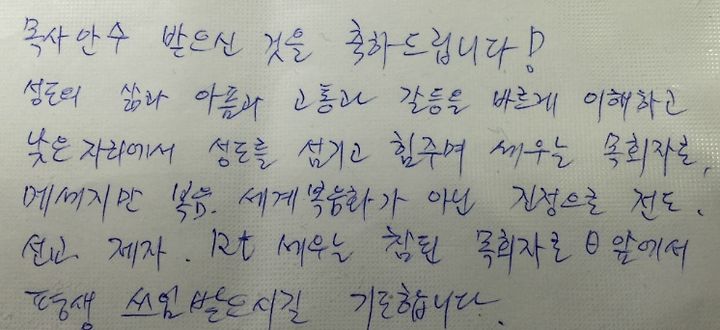 목사안수 받으신 것을 축하드립니다!
성도의 삶과 아픔과 고통과 갈등을 바르게 이해하고
낮은자리에서 성도를 섬기고 힘주며 세우는 목회자로,
메세지만 복음. 세계복음화가 아닌 진정으로 전도.
선교. 제자. Rt 세우는 참된 목회자로 θ앞에서
평생 쓰임받으시길 기도합니다.